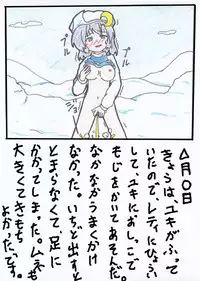 プル
プル
プル
プル
△月〇日
きょうは、ユキがふって
いたので、レティにひょうい
して、ユキにおしっこで
もじをかいてあそんだ。
なかなかうまくかけ
なかった。いちど出すと
とまらなくて、足に
かかってしまった。ムネも
大きくてきもち
よかったです。